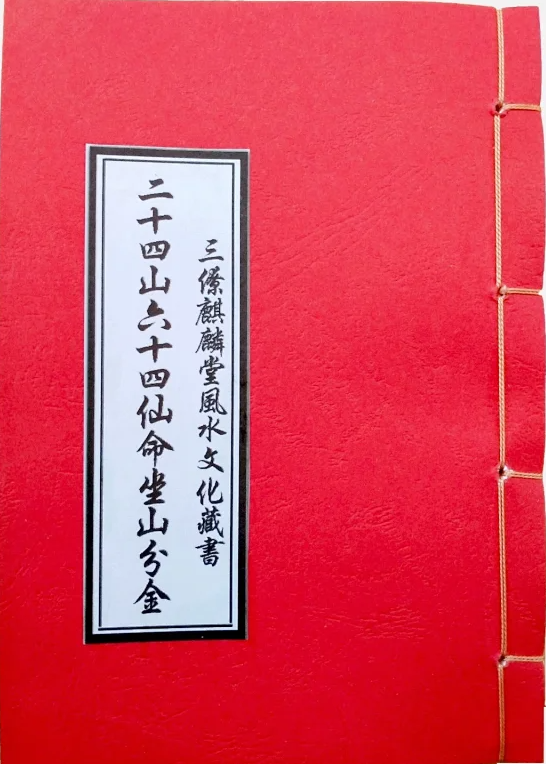 三僚麒麟堂風水文化藏書
二十四山六十四仙命坐山分金